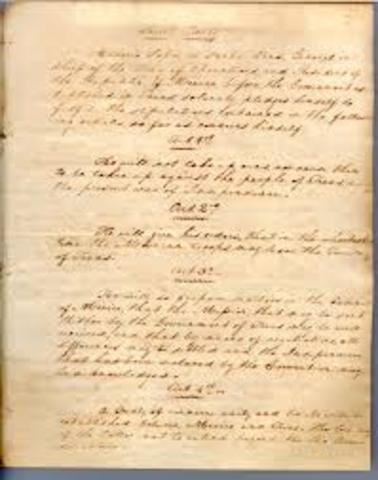 Secret Treaty
Antonio Lopez de Santa Anna, General in
chief of the Army of Operations and President of
the Republic of Mexico, before the Government es-
tablished in Texas solemnly pledges himself to
fulfil the stipulations contained in the follow-
ing articles so far as concerns himself
Art 1st
He will not take up arms, nor cause them
to be taken up against the people of Texas
the present war of Independence
Art 2d
He will give his orders that in the shortest
time the Mexican troops may leave the
of Texas
Art 3d
He will so prepare matters in the Cabinet
of Mexico, that the Mission that may be sent
thither by the Government of Texas may be well
received, and that by means of negotiations all
differences may be settled and the Independence
that has been declared by the Convention may
be acknowledged
Art 4th
A treaty of
established between Mexico and Texas, the
of the latter not to extend beyond the Rio Bravo